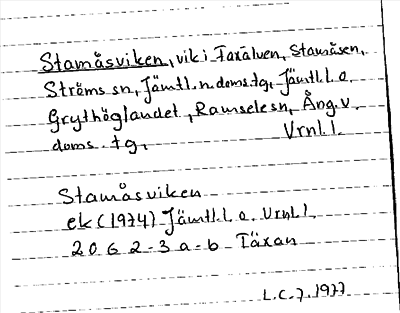 Stamåsviken, vik i Faxälven, Stamåsen,
Ströms sn, Jämtl. n. doms. tg, Jämtl. l. o.
Grythöglandet, Ramsele sn, Ång. v.
doms. tg, Vrnl l.
Stamåsviken
ek (1974) Jämtl. l. o. Vrnl l.
2062-3 a-b Täxan
L.C. 7. 1977